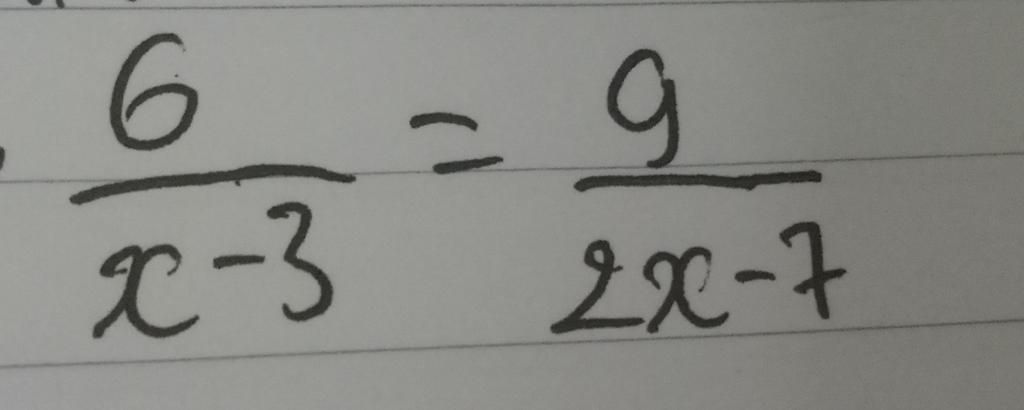 6/(x-3) = 9/(2x-7)